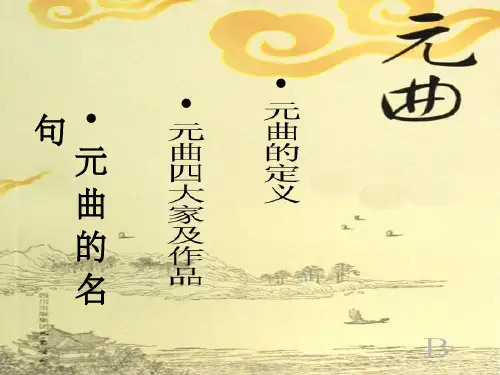 元曲
• 元曲的定义
• 元曲四大家及作品
• 元曲的名
句
B